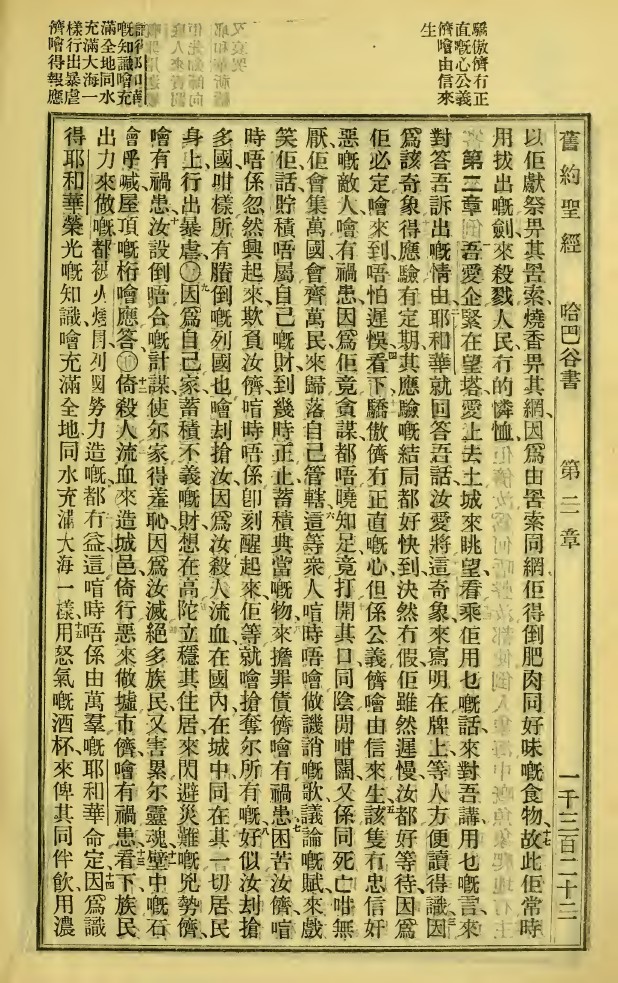 驕傲儕冇正
直嘅心公義
儕噲由信來
生
嘅知識噲充
滿全地同水
充滿大海一
樣行出暴虐
儕噲得報應
舊約聖經 哈巴谷書 第二章 一千三百二十二
以佢獻祭畀其罟索、燒香畀其網、因爲由罟索同網、佢得倒肥肉同好味嘅食物、十七故此佢常時
用拔出嘅劍、來殺戮人民、冇的憐恤、
第二章 一吾愛企緊在望塔、愛上去土城來眺望、看乘佢用乜嘅話來對吾講、用乜嘅言來
對答吾訴出嘅情由、二耶和華就回答吾話、汝愛將這奇象來寫明在牌上、等人方便讀得識、三因
爲該奇象得應驗有定期、其應驗嘅結局都好快到、決然冇假、佢雖然遲慢、汝都好等待、因爲
佢必定噲來到、唔怕遲悞、四看下驕傲儕冇正直嘅心、但係公義儕噲由信來生、五該隻冇忠信奸
惡嘅敵人、噲有禍患、因爲佢竟貪謀都唔曉知足、竟打開其口、同陰間咁闊、又係同死亡咁無
厭、佢會集萬國、會齊萬民、來歸落自己管轄、六這等衆人、喧時唔噲做譏誚嘅歌、議論嘅賦、來戲
笑佢話、貯積唔屬自己嘅財、到幾時正止、蓄積典當嘅物來擔罪債儕、噲有禍患、七困苦汝儕、喧
時唔係忽然興起來、欺負汝儕、喧時唔係卽刻醒起來、佢等就噲搶奪尔所有嘅、八好似汝刦搶
多國、咁樣所有賸倒嘅列國、也噲刦搶汝、因爲汝殺人流血、在國內在城中、同在其一切居民
身上行出暴虐、〇九因爲自己家、蓄積不義嘅財、想在高陀立穩其住居、來閃避災難嘅兇勢儕、
噲有禍患、十汝設倒唔合嘅計謀、使尔家得羞恥、因爲汝滅絕多族民、又害累尔靈魂、十一壁中嘅石
噲呼喊、屋頂嘅桁噲應答、〇十二倚殺人流血來造城邑、倚行惡來做墟市儕、噲有禍患、十三看下族民
出力來做嘅都被火燒、列國勞力造嘅都冇益、這喧時唔係由萬羣嘅耶和華命定、十四因爲識
得耶和華榮光嘅知識、噲充滿全地、同水充滿大海一樣、十五用怒氣嘅酒杯、來俾其同伴飲、用濃